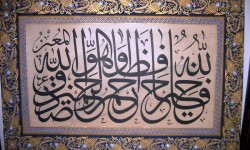 فالله خير حافظا وهو ارحم الراحمين
صدق الله